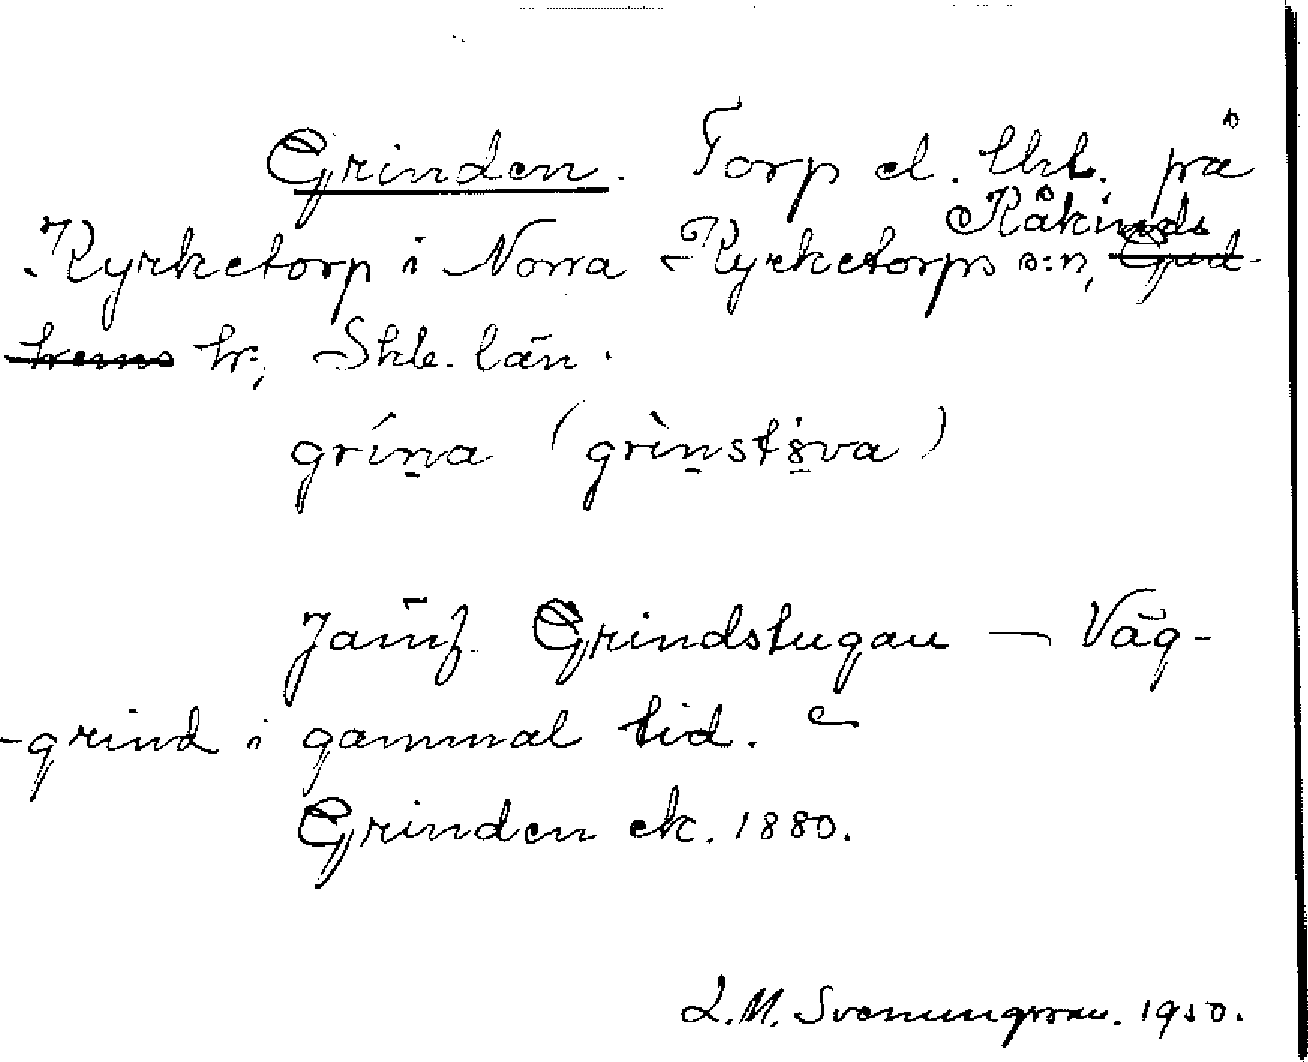 Grinden. Torp el. lht. på
Kyrketorp i Norra Kyrketorps s:n, Kåkinds Gud-
hems hr; Skb. län.
gríṉa (grìṉstöva)
Jämf. Grindstugan — Väg-
-grind i gammal tid.
Grinden ek. 1880.
L.M. Svenungsson. 1950.